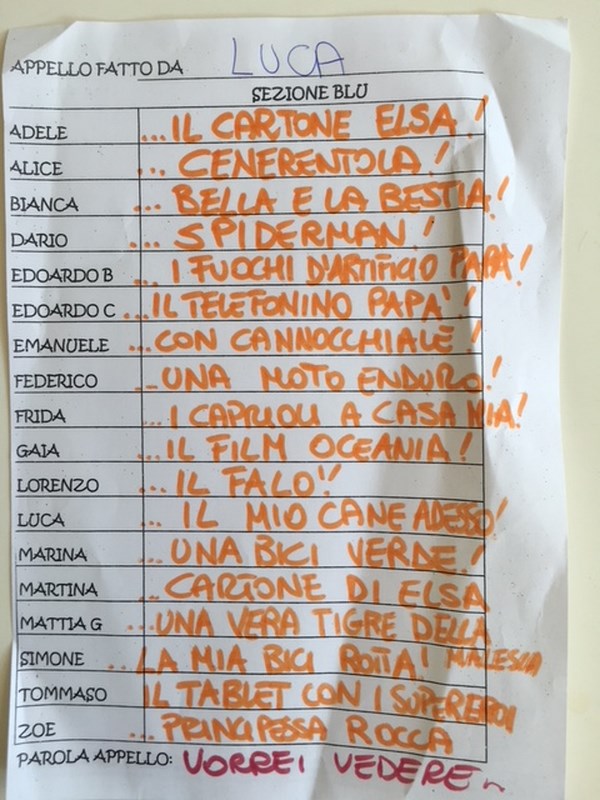 APPELLO FATTO DA LUCA
SEZIONE BLU
ADELE ...IL CARTONE ELSA!
ALICE ... CENERENTOLA!
BIANCA ... BELLA E LA BESTIA!
DARIO ... SPIDERMAN!
EDOARDO B ... I FUOCHI D'ARTIFICIO PAPÀ!
EDOARDO C ...IL TELEFONINO PAPA'!
EMANUELE ...CON CANNOCCHIALE!
FEDERICO ...UNA MOTO ENDURO!
FRIDA ...I CAPRIOLI A CASA MIA!
GAIA ...IL FILM OCEANIA!
LORENZO ...IL FALO'!
LUCA ... IL MIO CANE ADESSO!
MARINA ...UNA BICI VERDE!
MARTINA ...CARTONE DI ELSA
MATTIA G ...UNA VERA TIGRE DELLA
SIMONE ...LA MIA BICI ROTTA! MALESIA
TOMMASO IL TABLET CON I SUPEREROI
ZOE ...PRINCIPESSA ROCCA
PAROLA APPELLO: VORREI VEDERE...